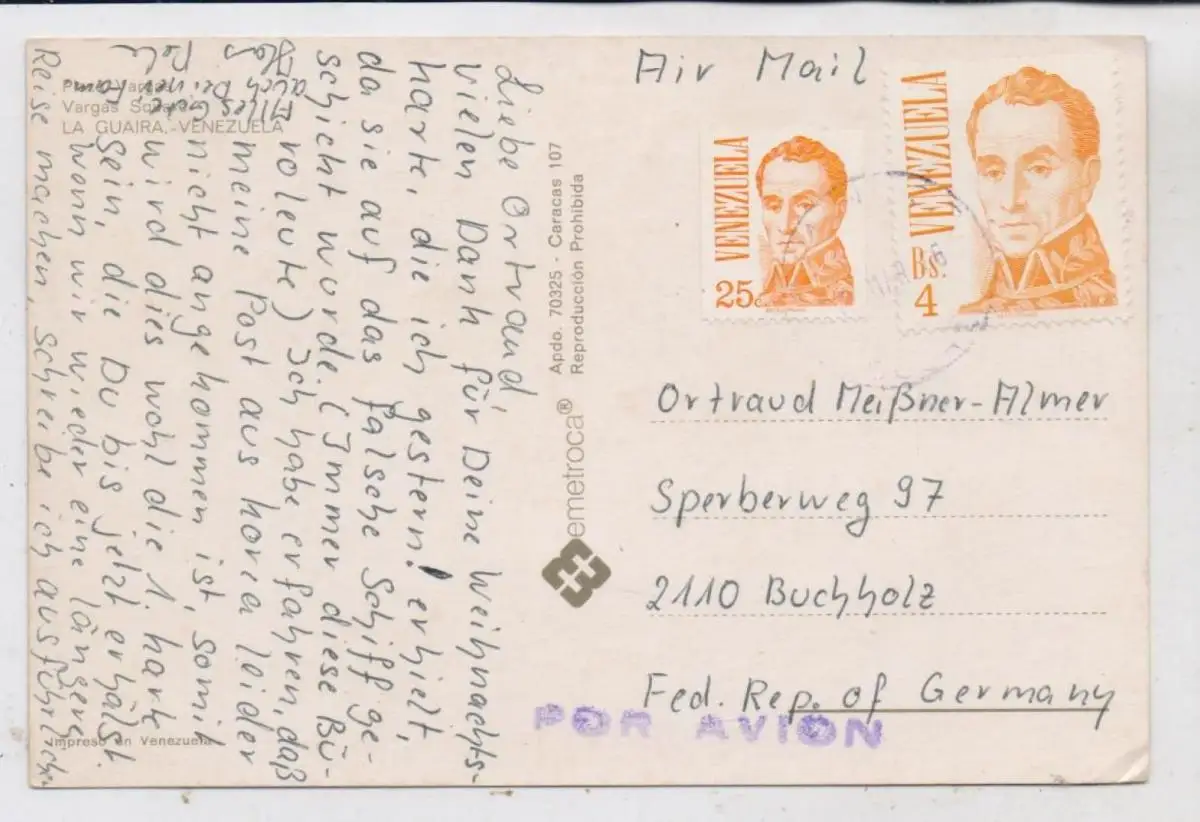 Air Mail
VENEZUELA
25c
VENEZUELA
Bs.
4
Ortraud Meißner-Almer
Sperberweg 97
2110 Buchholz
Fed. Rep. of Germany
POR AVION
Vargas
LA GUAIRA,-VENEZUELA
Impreso en Venezuela
emetroca®
Apdo. 70325 - Caracas 107
Reproducción Prohibida
Liebe Ortraud,
vielen Dank für Deine Weihnachts-
karte, die ich gestern! erhielt,
da sie auf das falsche Schiff ge-
schickt wurde. (Immer diese Bü-
roleute) Ich habe erfahren, daß
meine Post aus Korea leider
nicht angekommen ist, somit
wird dies wohl die 1. Karte
sein, die Du bis jetzt erhälst.
Wann wir wieder eine längere
Reise machen, schreibe ich ausführlicher
Alles Gute
auch Deinen